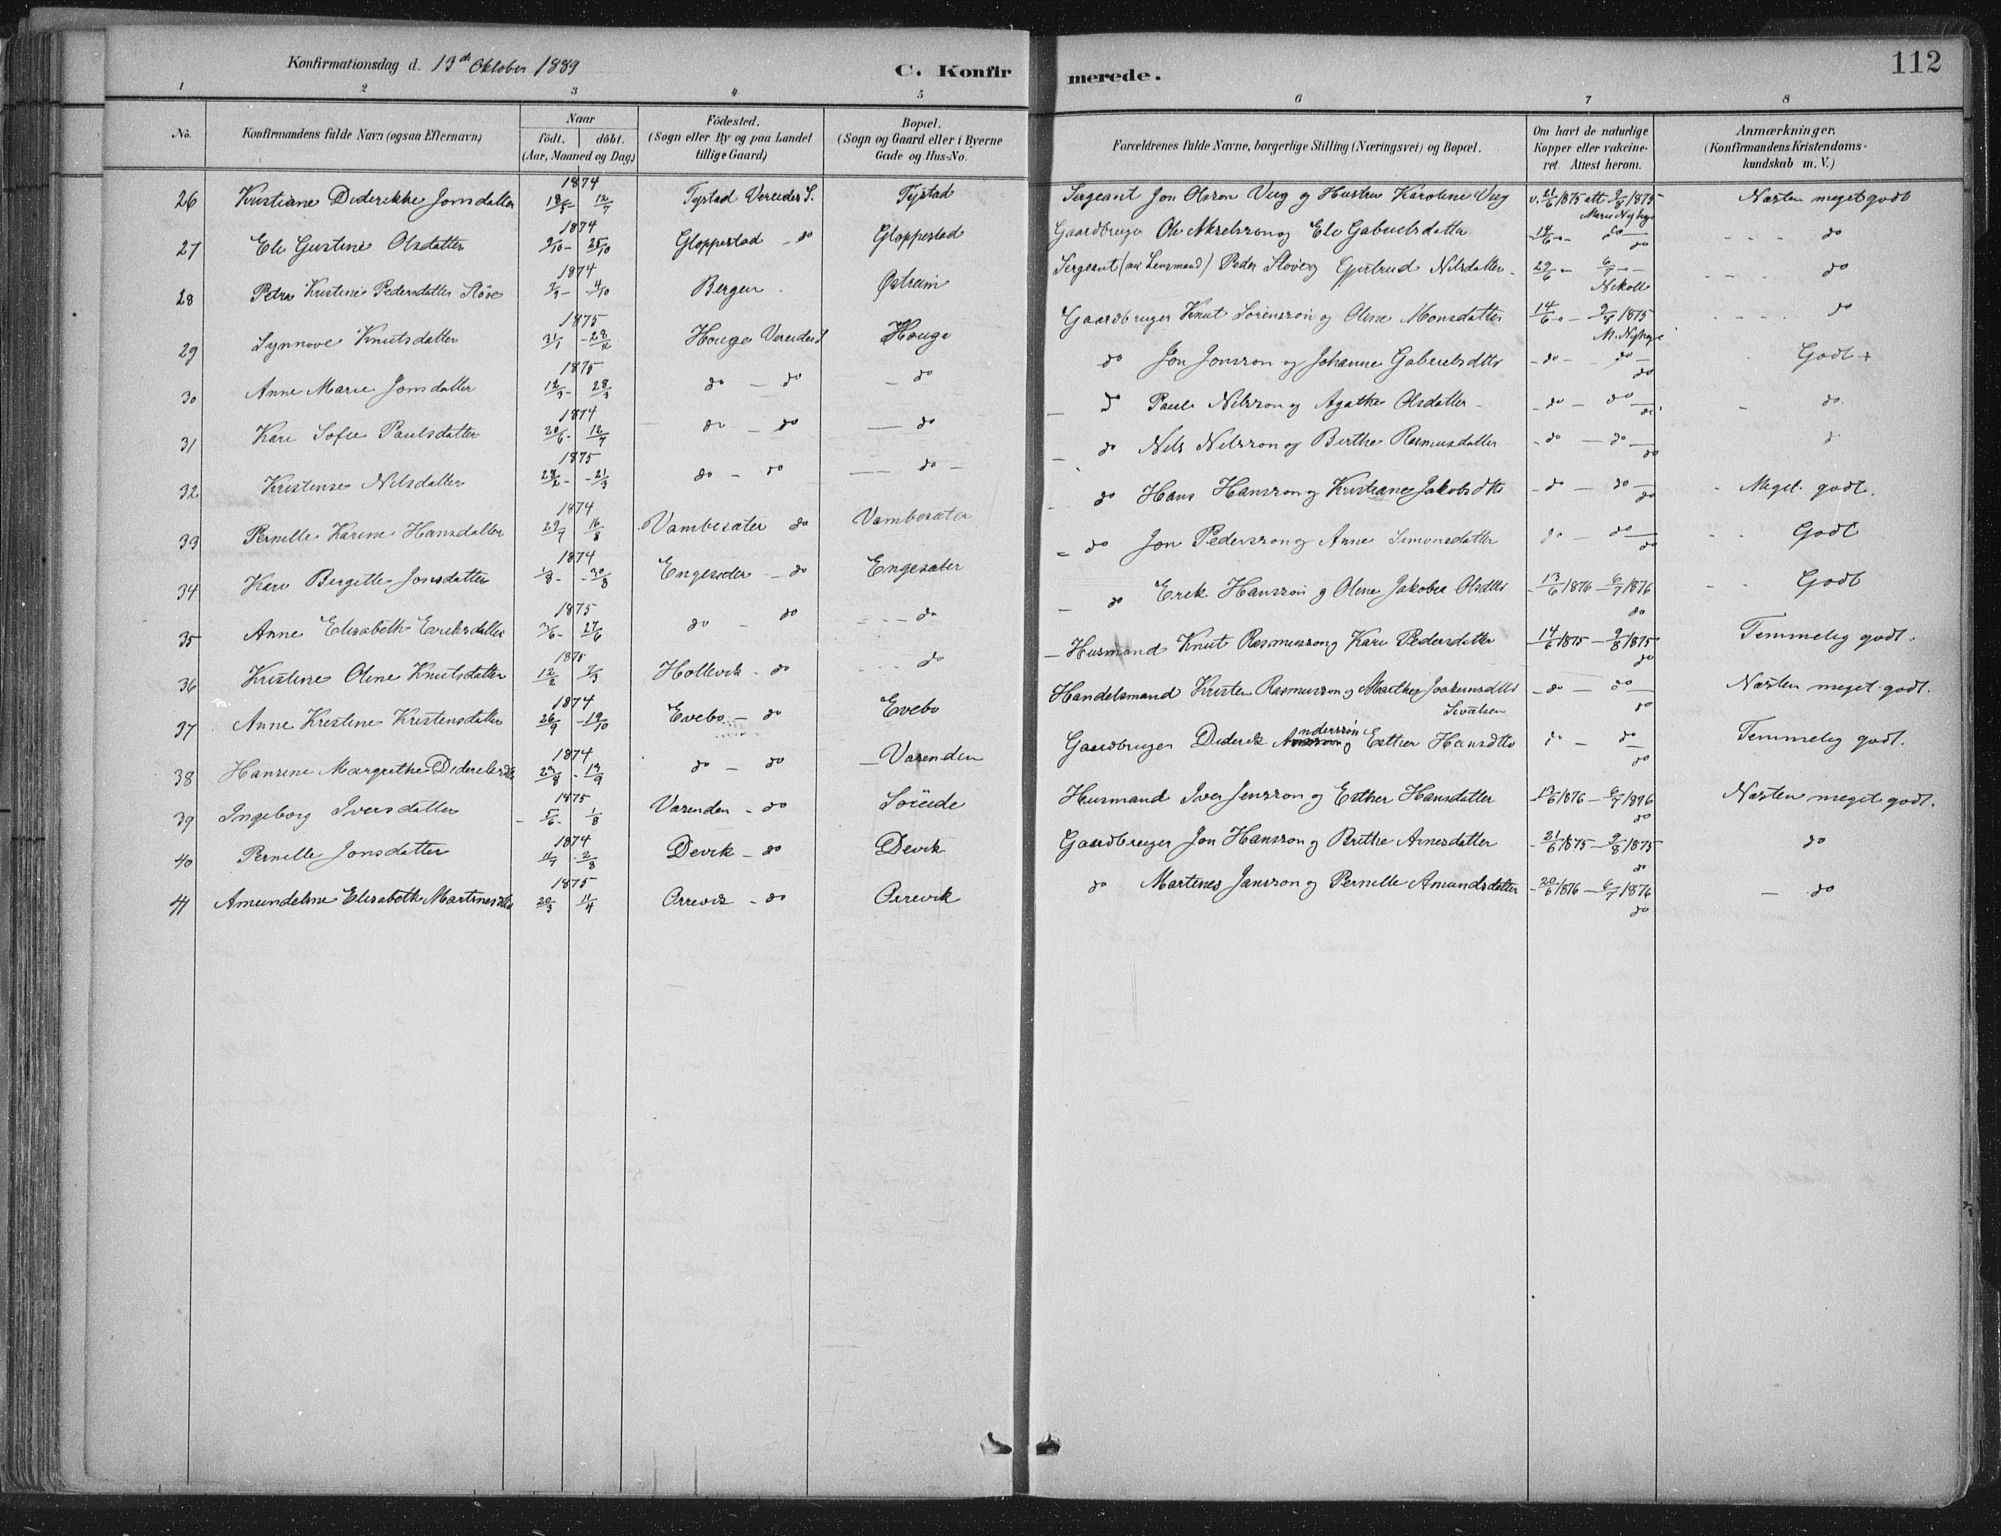 Konfirmationsdag d. 13de Oktober 1889
C. Konfirmerede.
112
1 2 3 4 5 6 7 8
No. | Konfirmandens fulde Navn (ogsaa Efternavn) | Naar födt. döbt. (Aar, Maaned og Dag) | Födested. (Sogn eller By og paa Landet tillige Gaard) | Bopæl. (Sogn og Gaard eller i Byerne Gade og Hus-No. | Forældrenes fulde Navne, borgerlige Stilling (Næringsvei) og Bopæl. | Om havt de naturlige Kopper eller vaccineret. Attest herom. | Anmærkninger. (Konfirmandens Kristendomskundskab m. V.)
26 Kristiane Diderikke Jonsdatter 1874 12/7 Tystad Vereides S. Tystad Sergeant Jon Olsson Vug og Hustru Karoline Vug v. 21/6 1875 att. 9/8 1875 Næsten meget godt
27 Ele Gustine Olsdatter 1874 9/10 - 25/10 Gloppestad - do Gloppestad Gaardbruger Ole Akselsson og Ele Gabrielsdatter 14/6 - do do
28 Petra Kristine Pedersdatter Støve 1874 4/10 Bergen Østreim Sergeant (nu Lensmand) Peder Støve og Gjertrud Nilsdatter 29/6 - 6/7 do
29 Synnove Knutsdatter 1875 31/1 - 28/2 Houge Vereides S Houge Gaardbruger Knut Sörensson og Oline Monsdatter 14/6 - 9/8 1875 do
30 Anne Marie Jonsdatter 1875 12/3 28/3 do - do do do Jon Jonsson og Johanne Gabrielsdtr - do - do Godt +
31 Kari Sofie Paulsdatter 1874 20/6 - 12/7 do - do do do Paul Nilsson og Agathe Olsdatter - do - do do
32 Kristense Nilsdatter 1875 - 21/3 do - do do do Nils Nilsson og Birthe Rasmusdatter - do - do do
33 Pernille Karine Hansdatter 1874 29/7 16/8 Vambesæter do Vambesæter do Hans Hansson og Kristiane Jakobsdtr - do - do Meget godt.
34 Kari Bergitte Jonsdatter 1874 1/8 - 30/8 Engesæter - do Engesæter do Jon Pedersson og Anne Simonsdatter do - do Godt
35 Anne Elisabeth Eriksdatter 1875 27/6 do - do do do Erik Hansson og Oline Jakobea Olsdtr 13/6 1876 - 6/7 1876 Godt
36 Kristine Oline Knutsdatter 1875 12/2 7/3 Hollevik - do do Husmand Knut Rasmusson og Kari Pedersdatter 14/6 1875 - 9/8 1875 Temmelig godt.
37 Anne Kristine Kristensdatter 1874 26/9 - 19/10 Evebo - do Evebo Handelsmand Kristen Rasmusson og Marthe Joakimsdtr - do - do Næsten meget godt.
38 Hansine Margrethe Dideriksdtr 1874 23/8 - 13/9 do - do Varenden Gaardbruger Diderik Andersson og Esther Hansdtr do - do Temmelig godt.
39 Ingeborg Iversdatter 1875 5/6 1/8 Varenden - do Söreide Husmand Iver Jensson og Esther Hansdatter 13/6 1876 - 6/7 1876 Næsten meget godt.
40 Pernille Jonsdatter 1874 11/7 - 2/8 Devik - do Devik Gaardbruger Jon Hansson og Brithe Arnesdatter 21/6 1875 - 9/8 1875 do
41 Amundeline Elisabeth Martinesdtr 1875 20/3 11/4 Orrevik - do Orrevik do Martines Jansson og Pernille Amundsdatter 20/6 1876 - 6/7 1876 do